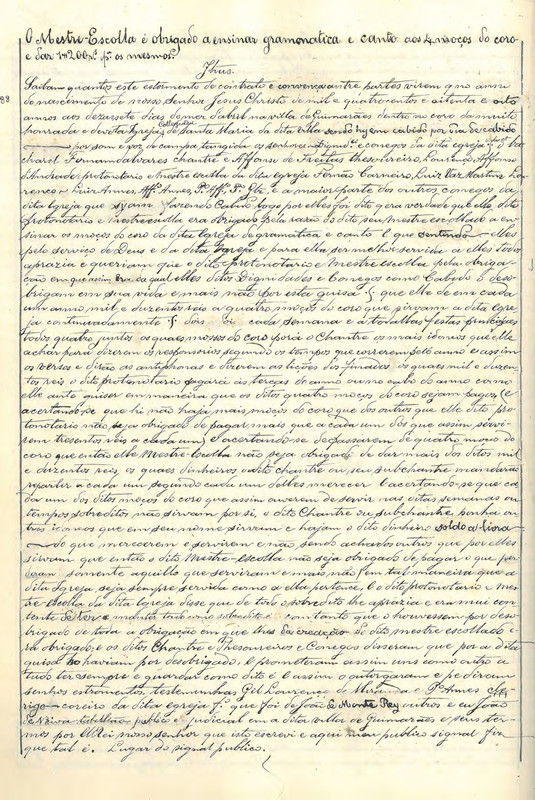 O Mestre-Escolla é obrigado a ensinar grammatica e canto aos 4 moços do coro
e dar 1200 rs. pª os mesmos.
Jhus.
88
Saibam quantos este estormento de contrato e convença antre partes virem que no anno
do nascimento de nosso Senhor Jesus Christo de mil e quatrocentos e oitenta e oito
annos aos dezassete dias do mez d'abril na villa de Guimarães dentro no coro da muito
honrada e devota Egreja Collegiada de Santa Maria da dita villa sendo hy em cabido por dia de cabido
por som e voz de campa tangida os senhores Dignid.es e conegos da dita egreja o ba-
charel Fernand'alvares chantre e Affonso de Freitas thesoureiro, Lourenço Affonso
d'Andrade protonotario e mestre escolla da dita egreja Fernão Carneiro, Luiz Vaz, Martim Lou-
renço e Luiz Annes, Aff.º Annes, P.º Aff.º e a maior parte dos outros conegos da
dita Egreja que syam fazendo Cabido logo por elles foi dito que era verdade que elle dito
protonotario e mestre escolla era obrigado pela razão do dito seu mestre escollado a en-
sinar os moços do coro da dita Egreja de gramatica e canto e que sentindo elles
pelo serviço de Deus e da dita Egreja e para ella ser melhor servida a elles todos
aprazia e queriam que o dito protonotario e Mestre escolla pela obriga-
ção em que assim era da qual elles ditos Dignidades e Conegos como Cabido o deso-
brigam em sua vida e mais não por esta guisa § que elle de em cada
um anno mil e duzentos réis a quatro moços do coro que sirvam a dita Egre-
ja continuadamente § dois cada semana e a todallas festas principaes
todos quatro juntos os quaes moços do coro porá o Chantre os mais idoneos que elle
achar para dizerem os responsorios segundo os tempos que correrem pelo anno e assim
os versos e dirão as antiphonas e dizerem as lições dos finados, os quaes mil e duzen-
tos réis o dito protonotario pagará ás terças do anno ou no cabo do anno como
elle ante quiser em maneira que os ditos quatro moços do coro sejam pagos, (e
acertando-se que hi não haja mais moços do coro que dos outros que elle dito pro-
tonotario não seja obrigado de pagar mais que a cada um dos que assim servi-
rem tresentos réis a cada um) e acertando-se de passarem de quatro moços do
coro que então elle Mestre-Escolla não seja obrigado de dar mais dos ditos mil
e duzentos reis, os quaes dinheiros o dito chantre ou seu subchantre mandará
repartir a cada um segundo cada um delles merecer e acertando-se que ca-
da um dos ditos moços do coro que assim ouverem de servir nas ditas semanas ou
tempos sobreditos não sirvam por si, o dito Chantre ou subchantre, ponha ou-
tros idoneos que em seu nome sirvam e hajam o dito dinheiro soldo a livra
do que merecerem e servirem e não sendo achados outros que por elles
sirvam que então o dito Mestre-Escolla não seja obrigado de pagar o que per-
deram somente aquillo que serviram e mais não em tal maneira que a
dita Egreja seja sempre servida como a ella pertence, e o dito protonotario e mes-
tre-escolla da dita Egreja disse que de todo o sobredito lhe aprazia e era mui con-
tente de ter e manter todo como sobredito é contanto que o houvessem por deso-
brigado de toda a obrigação em que lhes da creação do dito mestre escollado e-
ra obrigado, e os ditos Chantre e Thesoureiros e Conegos disseram que por a dita
guisa o haviam por desobrigado, e prometeram assim uns como outros a
tudo ter sempre e guardar como dito é e assim o outorgaram e pediram
senhos estromentos, testemunhas Gil Lourenço de Miranda e P.º Annes cle-
rigo - coreiro da dita egreja f.º que foi de João de Monte Rey outros e eu João
de Neiva tabellião publico e judicial em a dita villa de Guimarães e seus ter-
mos por ElRei nosso senhor que isto escrevi e aqui meu publico signal fiz
que tal é. Lugar do signal publico.